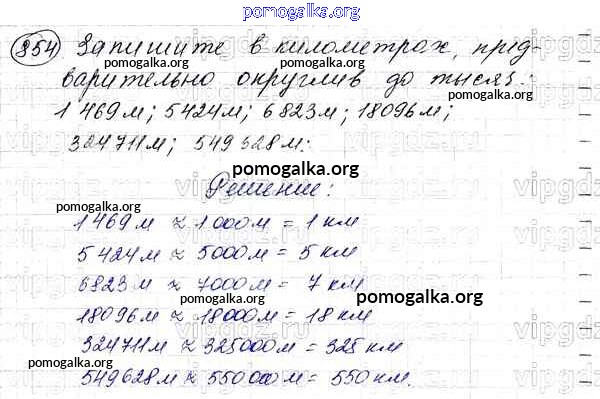 pomogalka.org
854. Запишите в километрах, пред-
варительно округлив до тысяч:
pomogalka.org
pomogalka.org
1 469 м; 5424 м; 6823 м; 18096 м;
324711 м; 549 628 м.
pomogalka.org
Решение:
pomogalka.org
1 469 м ≈ 1 000 м = 1 км
5 424 м ≈ 5000 м = 5 км
pomogalka.org
6823 м ≈ 7000 м = 7 км
pomogalka.org
pomogalka.org
18096 м ≈ 18000 м = 18 км
324711 м ≈ 325000 м = 325 км
pomogalka.org
549628 м ≈ 550 000 м = 550 км.
pomogalka.org